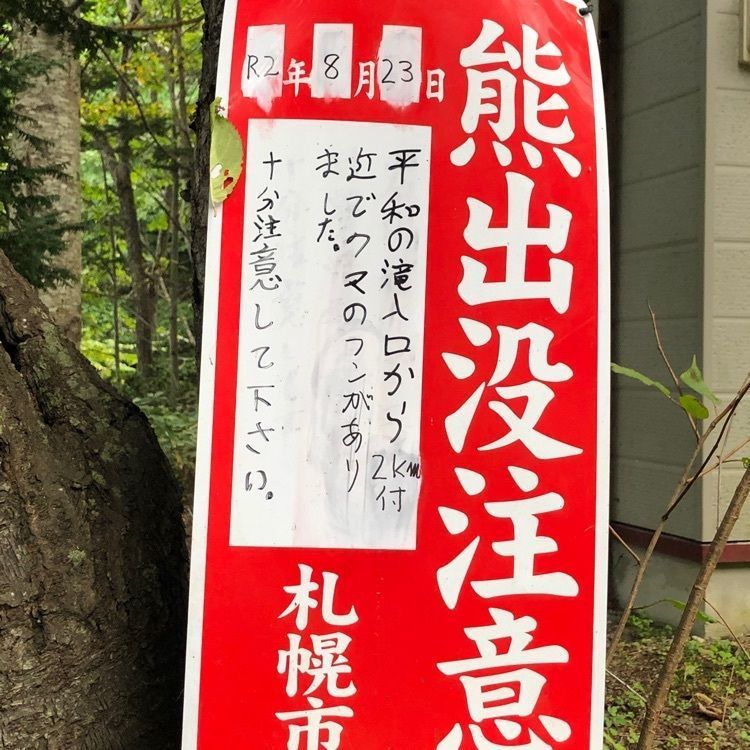 熊出没注意
R2年8月23日
平和の滝入口から2km付
近でクマのフンがあり
ました。
十分注意して下さい。
札幌市